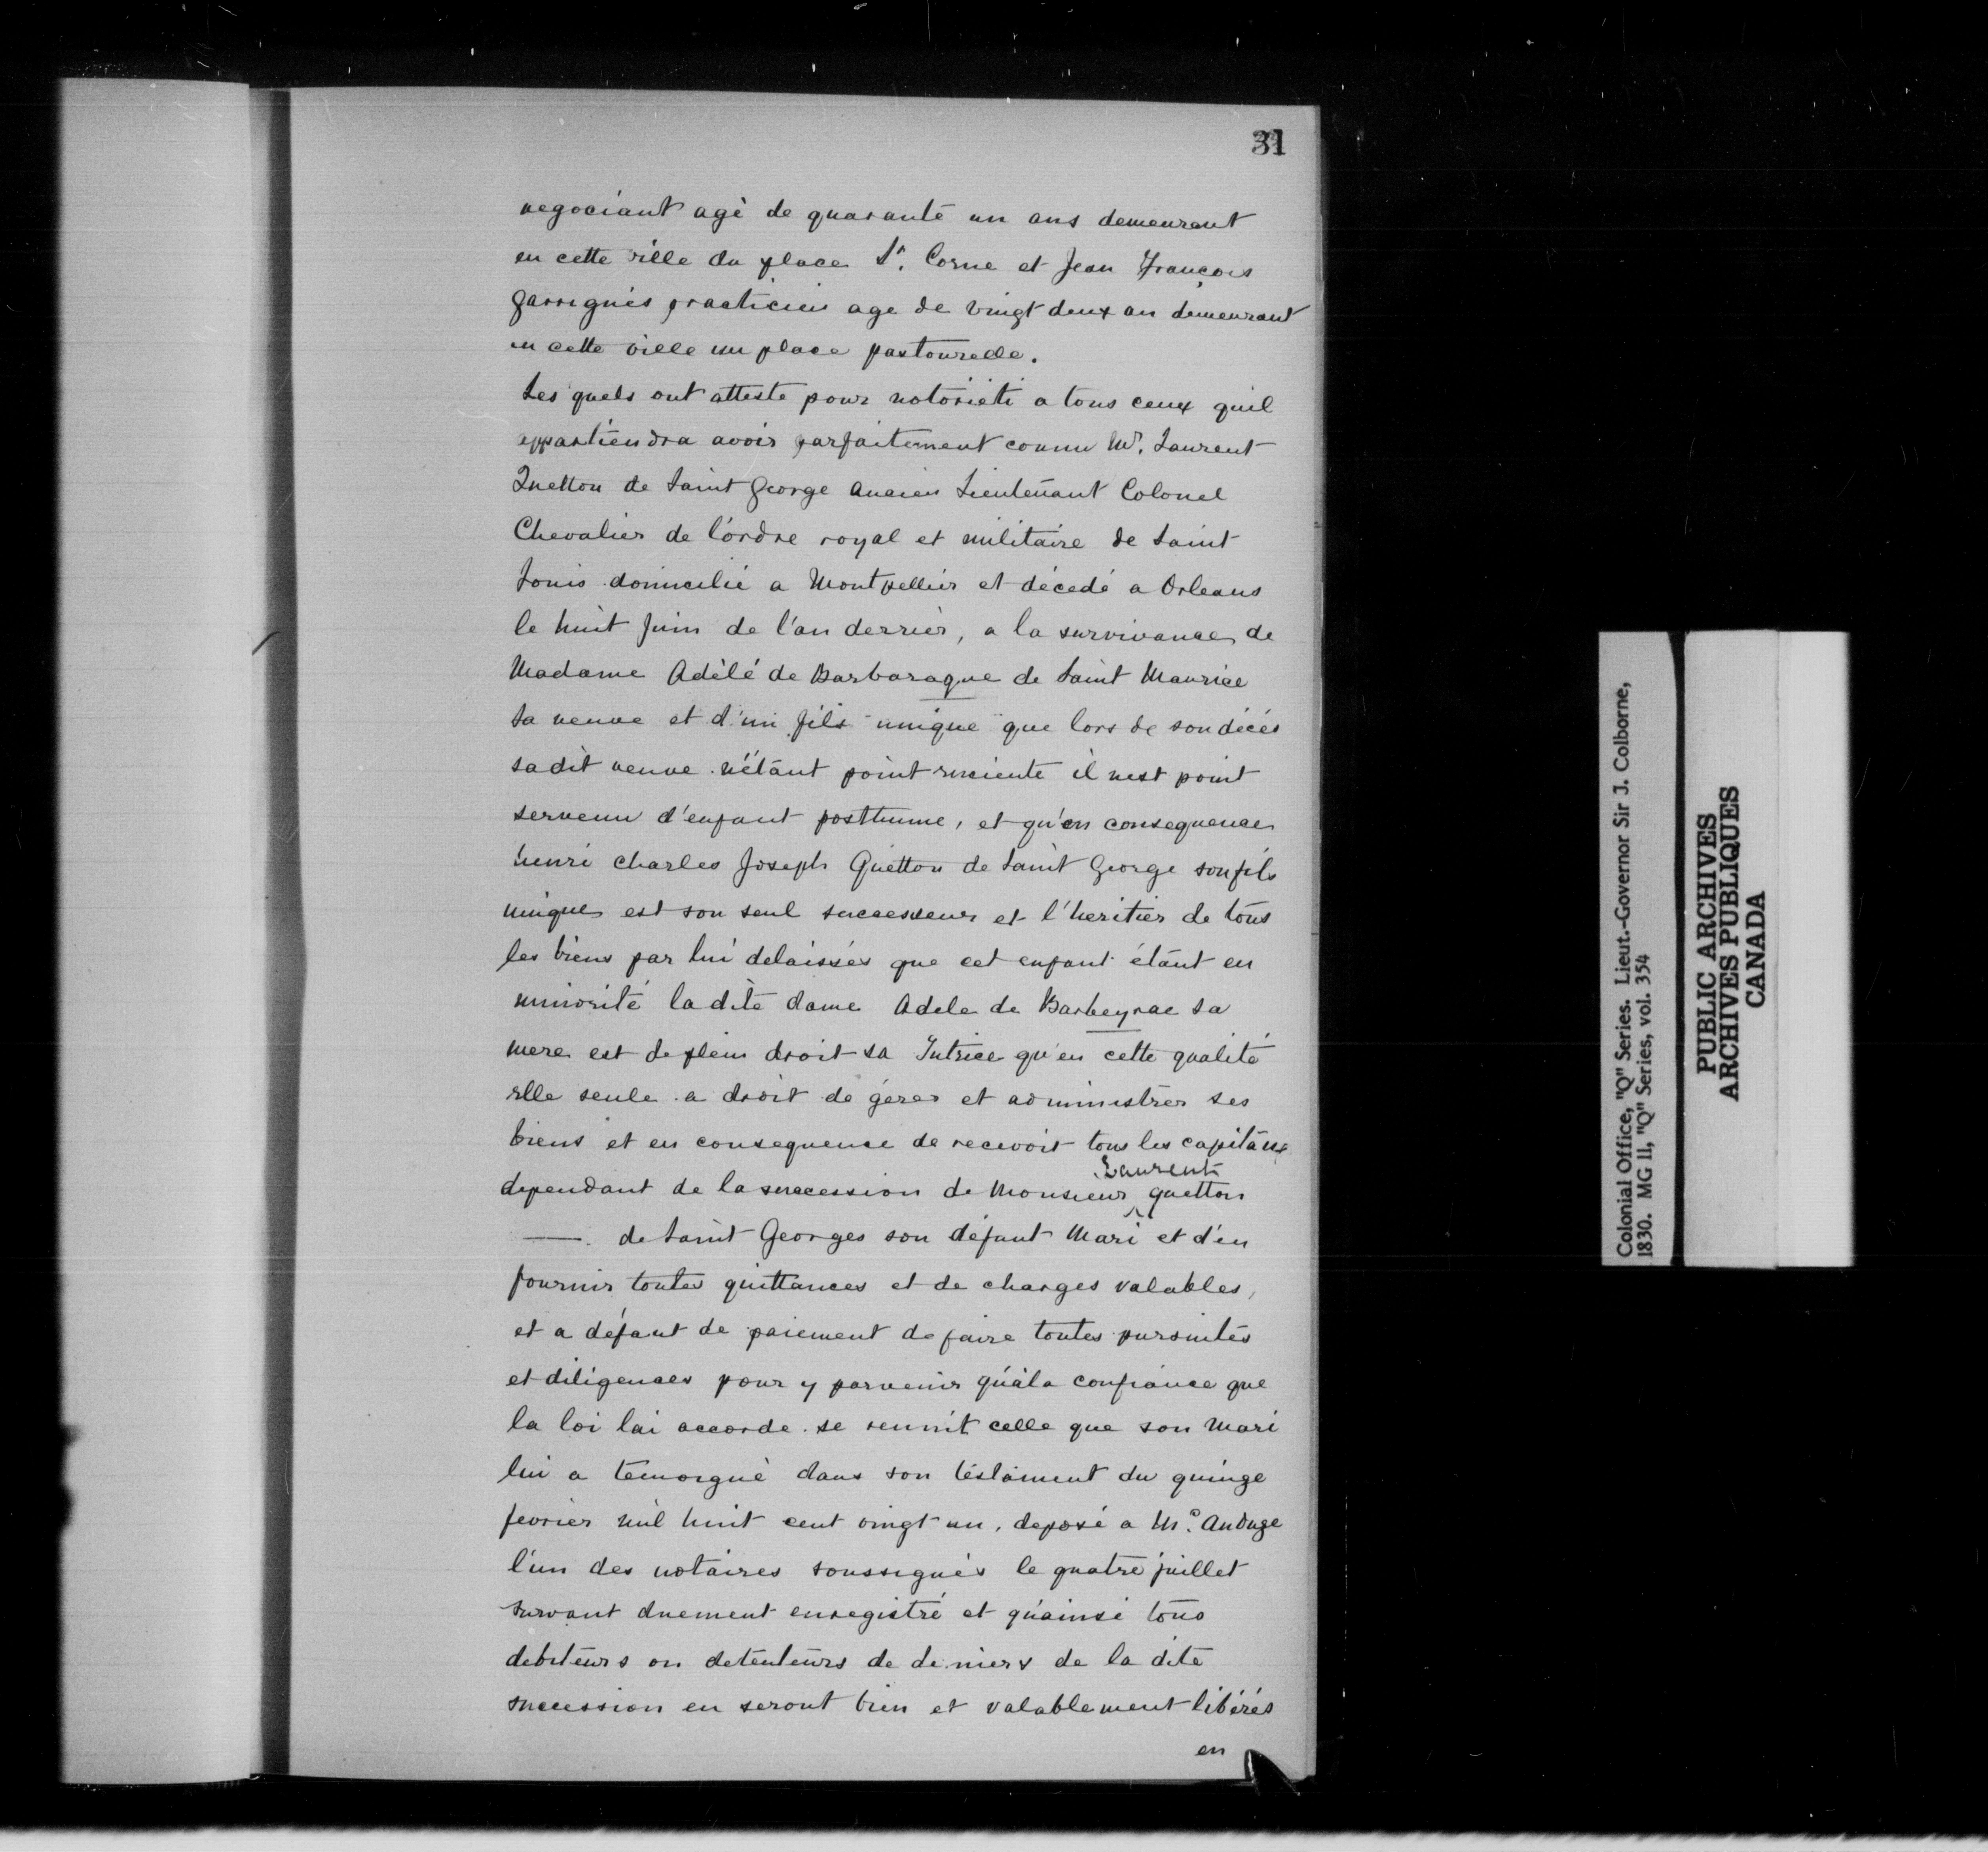 31
negociant agè de quarante un ans demeurant
en cette ville du place St. Corne et Jean François
Garrigues practicien age de vingt deux an demeurant
en cette ville un place pastourelle.
Les quels ont atteste pour notorieti a tous ceux quil
appartiendra avoir parfaitement connu Mr. Laurent
Quetton de Saint George Ancien Lieutenant Colonel
Chevalier de l'ordre royal et militaire de Saint
Louis domicilié a Montpellier et décedé a Orleans
le huit Juin de l'an derrier, a la survivance de
Madame Adèlé de Barbaraque de Saint Maurice
Sa veuve et d'un fils unique que lors de son décés
sadit veuve n'étant point enciente il nest point
servenu d'enfant posthume, et qu'en consequence
henri Charles Joseph Quetton de Saint George son fils
unique est son seul successeur et l'heritier de tous
les biens par lui delaissés que cet enfant étant en
minorité la dite dame Adele de Barbeyrac sa
mere est de plein droit sa Tutrice qu'en cette qualité
elle seule a droit de gérer et administrer ses
biens et en consequence de recevoir tous les capitaux
dependant de la succession de Monsieur Laurent quetton
—. de Saint Georges son défunt Mari et d'en
fournir toutes quittances et de charges valables,
et a défaut de paiement de faire toutes pursuites
et diligences pour y parvenir qu'àla confiance que
la loi lai accorde se reunit celle que son Mari
lui a temoigné dans son testament du quinze
fevrier mil huit cent vingt un, deposé a Me. Anduze
l'un des notaires soussignés le quatre juillet
survant duement enregistré et qu'ainsi tous
debiteurs ou detenteurs de deniers de la dite
succession en seront bien et valablement libérés
en
Colonial Office, "Q" Series. Lieut.-Governor Sir J. Colborne,
1830. MG 11, "Q" Series, vol. 354
PUBLIC ARCHIVES
ARCHIVES PUBLIQUES
CANADA